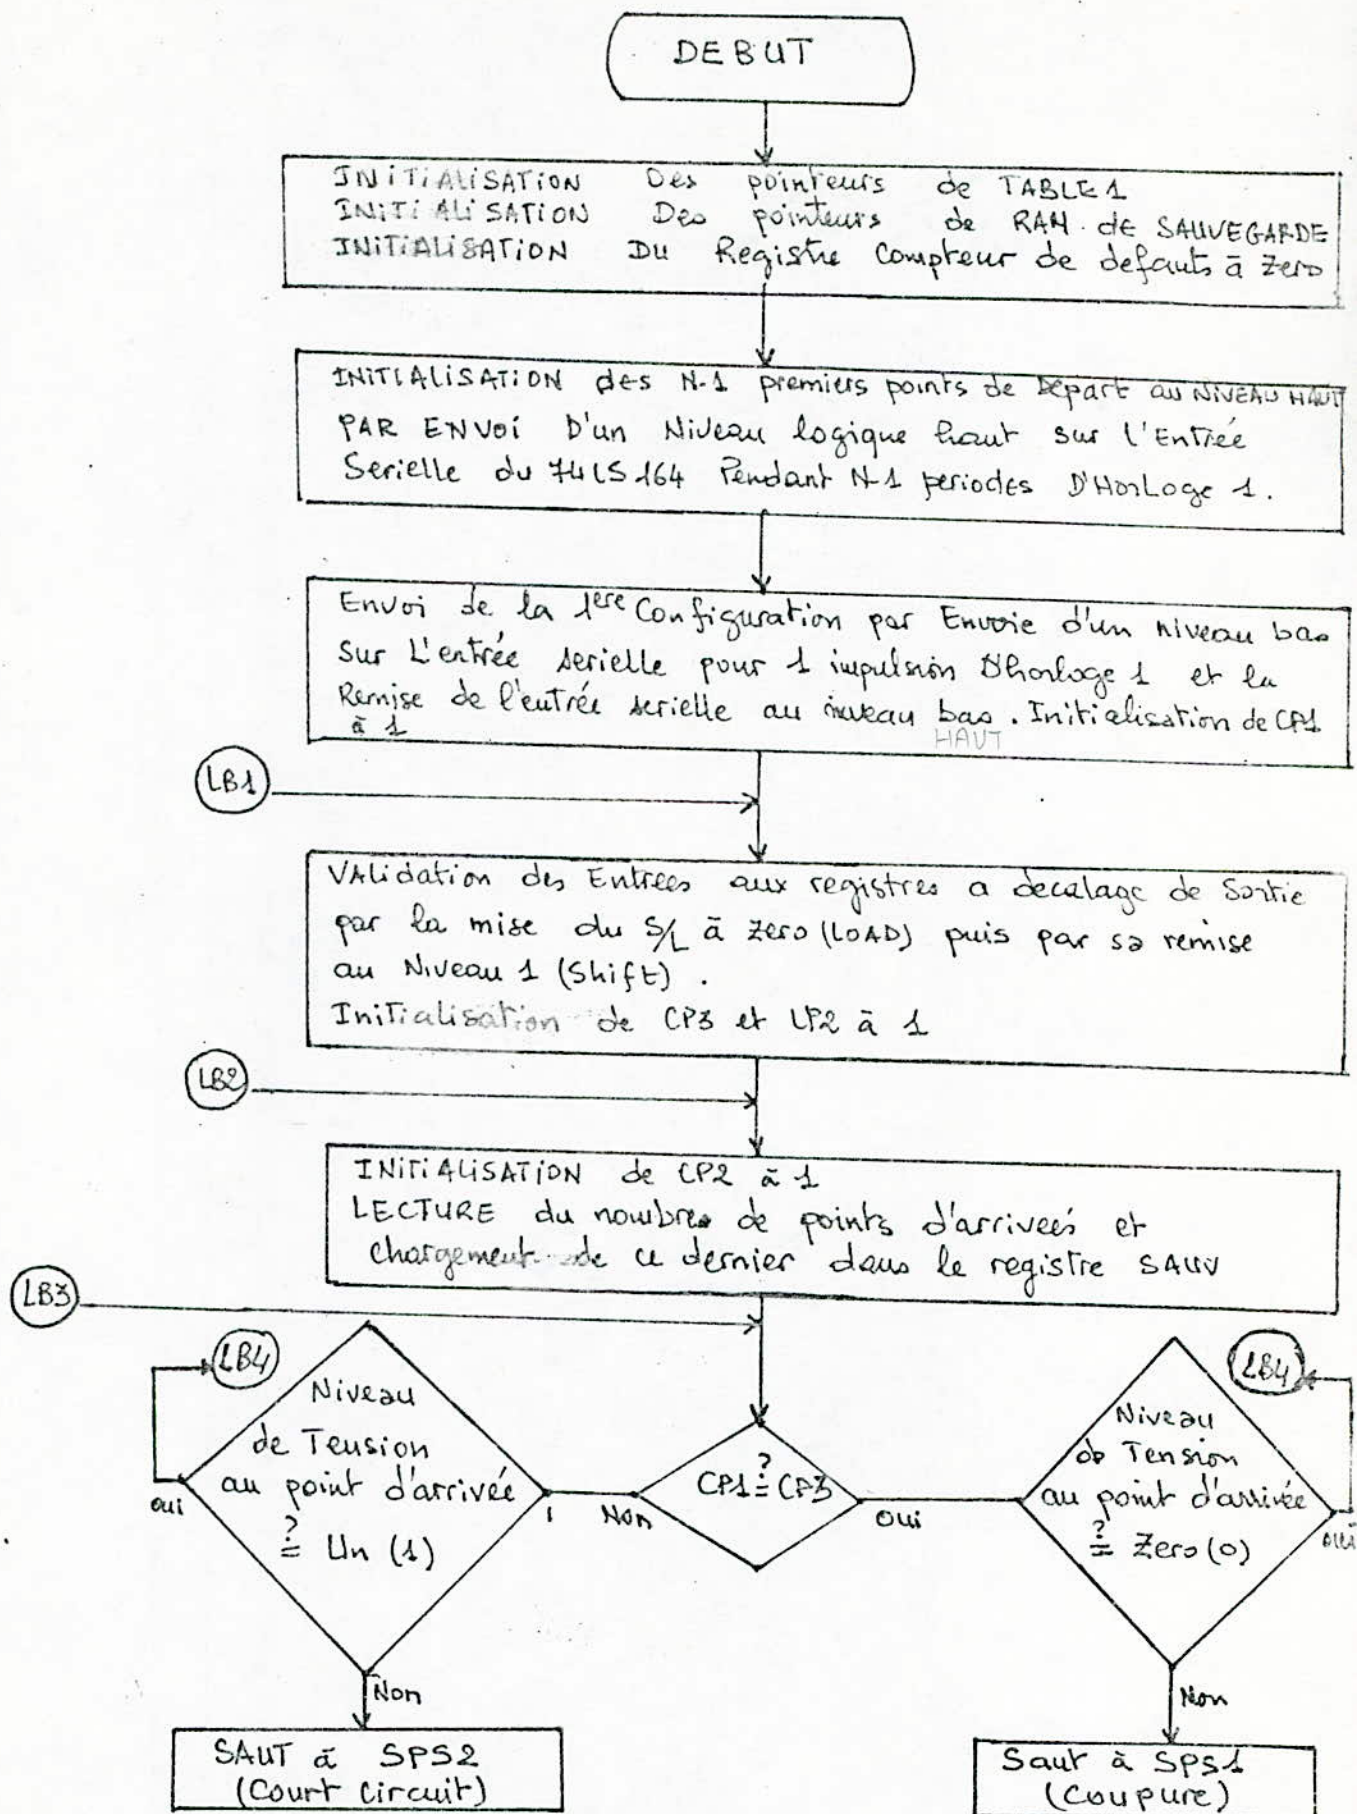 DEBUT
INITIALISATION Des pointeurs de TABLE 1
INITIALISATION Des pointeurs de RAM. de SAUVEGARDE
INITIALISATION DU Registre Compteur de defauts à zero
INITIALISATION des N-1 premiers points de Départ au NIVEAU HAUT
PAR ENVOI D'un Niveau logique haut sur l'Entrée
Serielle du 74LS164 Pendant N-1 periodes D'HorLoge 1.
Envoi de la 1ere Configuration par Envoie d'un niveau bas
sur L'entrée serielle pour 1 impulsion D'horloge 1 et la
Remise de l'entrée serielle au niveau bas. Initialisation de CP1
à 1
HAUT
LB1
VALidation des Entrees aux registres a decalage de Sortie
par la mise du S/L à zero (LOAD) puis par sa remise
au Niveau 1 (Shift).
InitiAlisation de CP3 et CP2 à 1
LB2
INITIALISATION de CP2 à 1
LECTURE du nombres de points d'arriveés et
chargement de ce dernier dans le registre SAUV
LB3
LB4
Niveau
de Tension
au point d'arrivée
?
= Un (1)
oui
Non
CP1 ?= CP3
Non
Oui
LB4
Niveau
de Tension
au point d'arrivée
?
= Zero (0)
oui
Non
SAUT à SPS2
(Court Circuit)
Saut à SPS1
(Coupure)